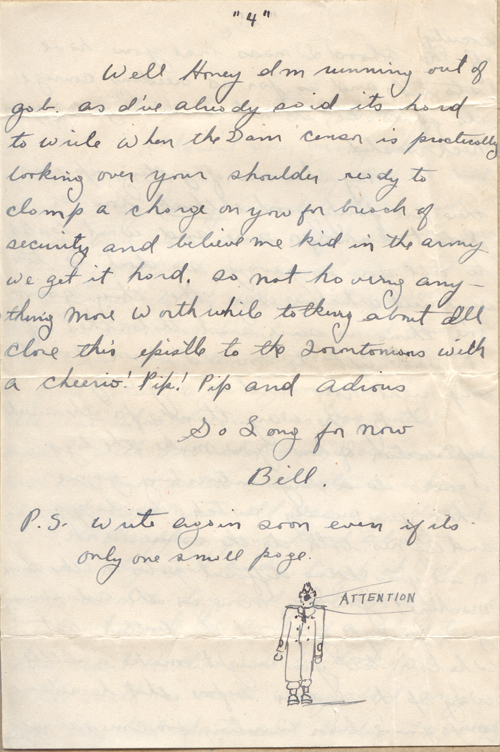 "4"
Well Honey I'm running out of
gab. as I've already said its hard
to write when the Dam censor is practically
looking over your shoulder ready to
clamp a charge on you for breach of
security and believe me kid in the army
we get it hard. so not having any-
thing more worthwhile talking about I'll
close this epistle to the Torontonions with
a cheerio! Pip! Pip and adious
So Long for now
Bill.
P.S. write again soon even if its
only one small page.
ATTENTION